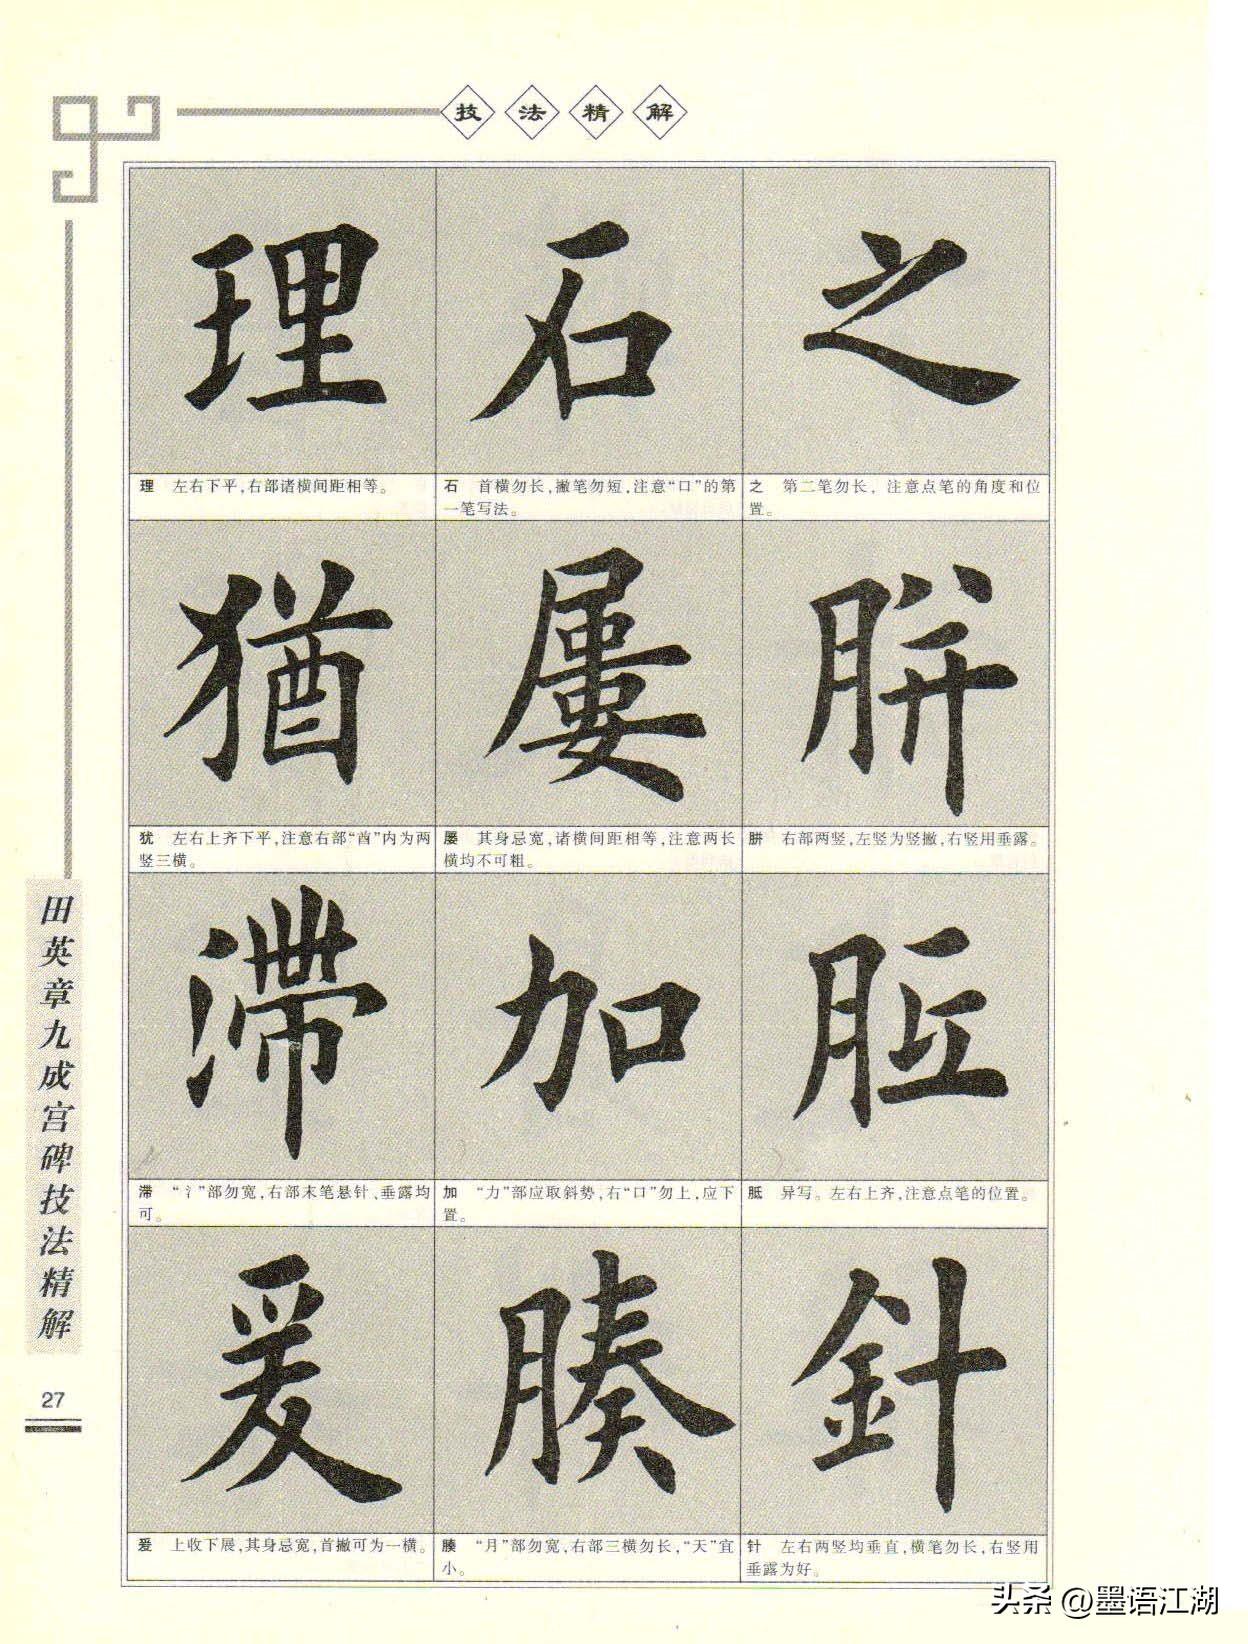 技法精解
理 石 之
理 左右下平,右部诸横间距相等。
石 首横勿长,撇笔勿短,注意“口”的第
一笔写法。
之 第二笔勿长，注意点笔的角度和位
置。
猶 屢 胼
犹 左右上齐下平,注意右部“酋”内为两
竖三横。
屡 其身忌宽,诸横间距相等,注意两长
横均不可粗。
胼 右部两竖,左竖为竖撇,右竖用垂露。
滯 加 胝
滞 “氵”部勿宽,右部末笔悬针、垂露均
可。
加 “力”部应取斜势,右“口”勿上,应下
置。
胝 异写。左右上齐,注意点笔的位置。
爰 腠 針
爰 上收下展,其身忌宽,首撇可为一横。
腠 “月”部勿宽,右部三横勿长,“天”宜
小。
针 左右两竖均垂直,横笔勿长,右竖用
垂露为好。
田英章九成宫碑技法精解
27
头条 @墨语江湖